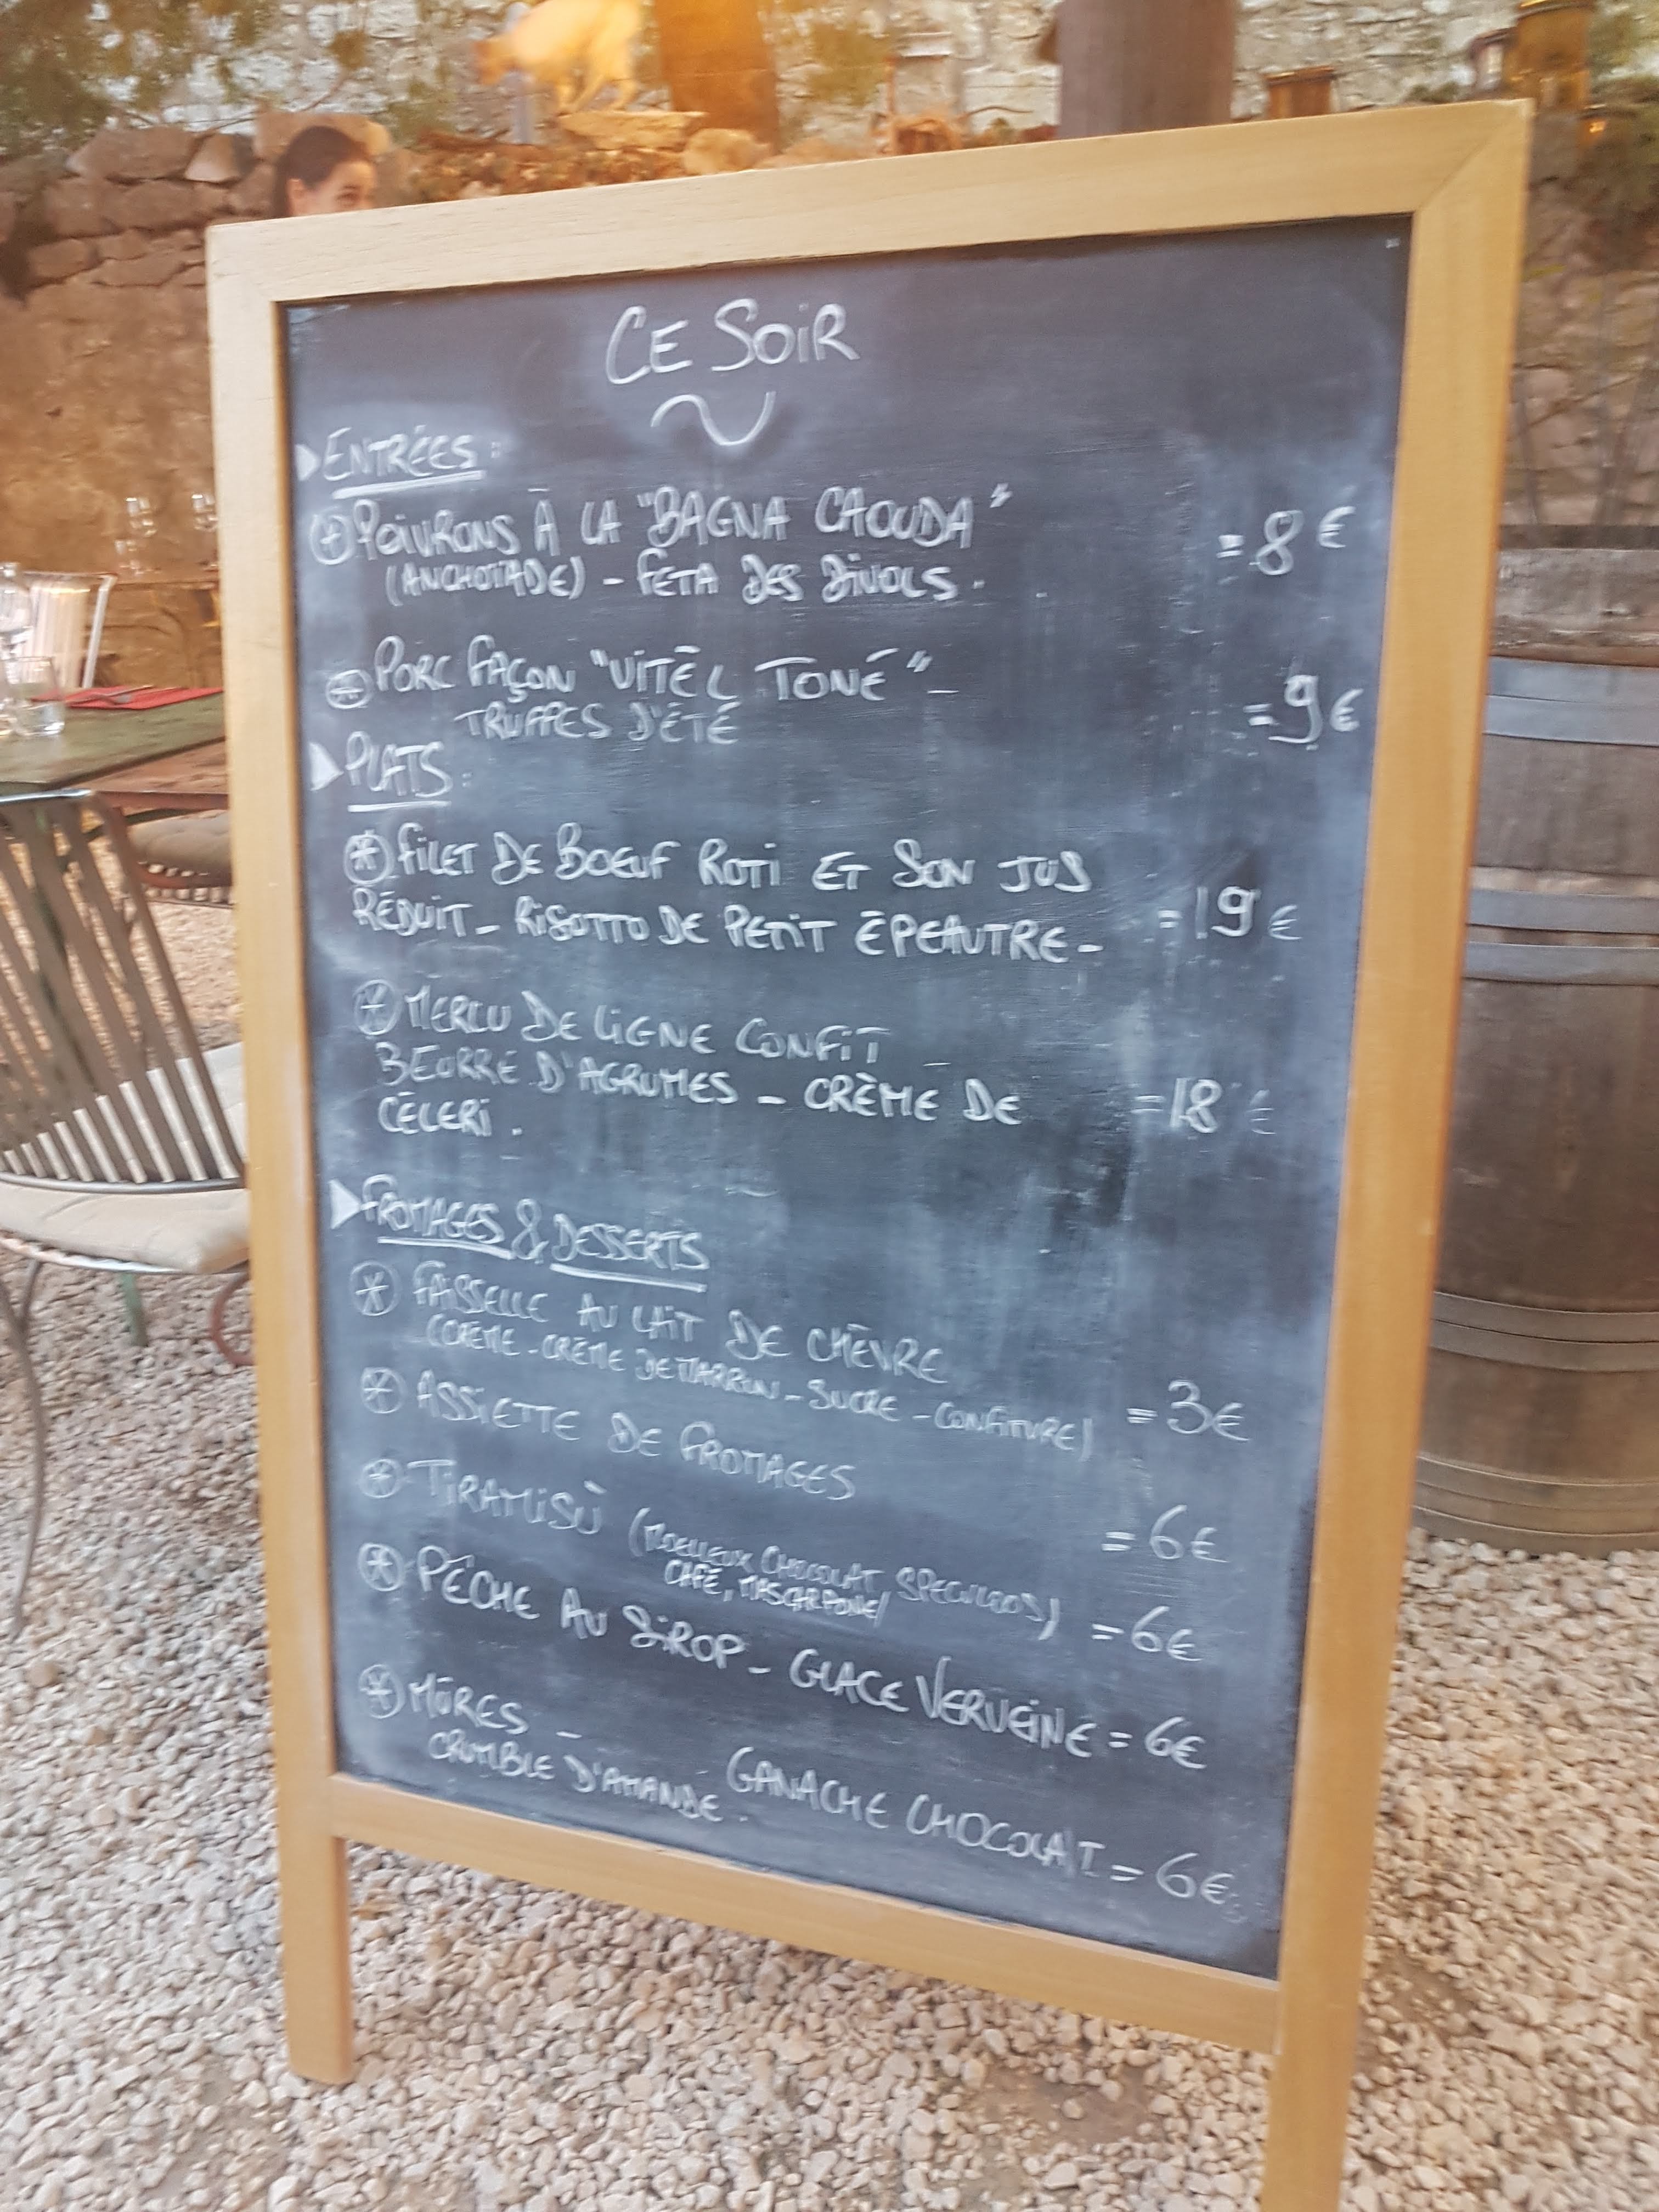 CE SOIR
ENTRÉES:
POIVRONS À LA "BAGNA CAOUDA" = 8€
(ANCHOÏADE) - FETA DES DIVOLS.
PORC FAÇON "VITÉL TONÉ" - = 9€
TRUFFES D'ÉTÉ
PLATS:
FILET DE BOEUF ROTI ET SON JUS
RÉDUIT - RISOTTO DE PETIT ÉPEAUTRE - = 19€
MERLU DE LIGNE CONFIT
BEURRE D'AGRUMES - CRÈME DE = 18€
CÉLERI.
FROMAGES & DESSERTS
FAISSELLE AU LAIT DE CHÈVRE
(CRÈME - CRÈME DE MARRON - SUCRE - CONFITURE) = 3€
ASSIETTE DE FROMAGES = 6€
TIRAMISÙ (MOELLEUX CHOCOLAT SPECULOOS) = 6€
CAFÉ, MASCARPONE/
PÊCHE AU SIROP - GLACE VERVEINE = 6€
MÛRES - GANACHE CHOCOLAT = 6€
CRUMBLE D'AMANDE.